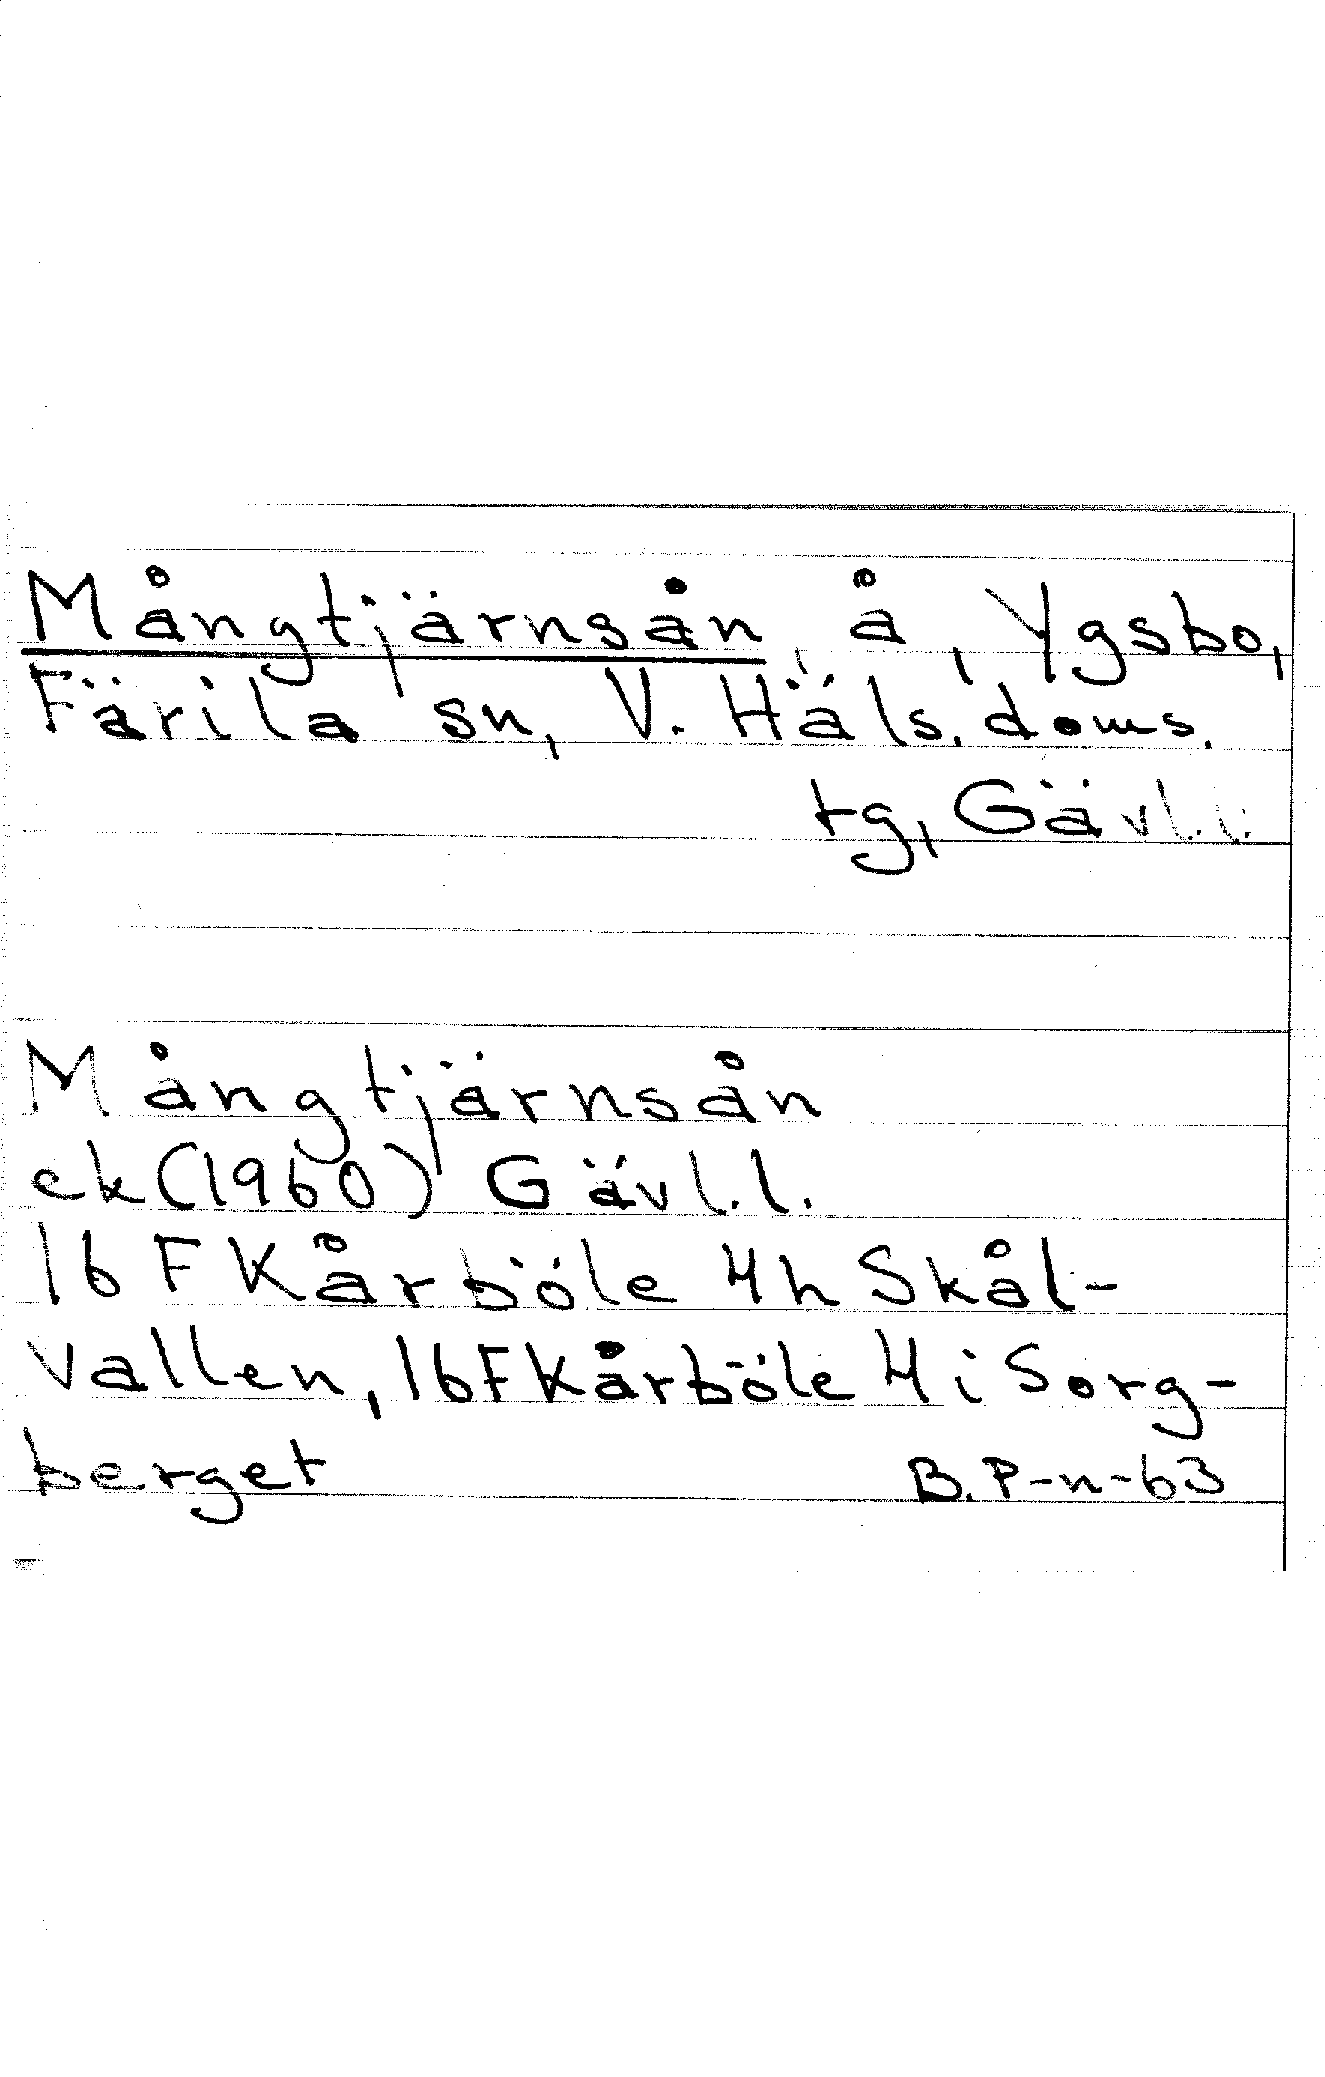 Mångtjärnsån, å, Ygsbo,
Färila sn, V. Häls. doms.
tg, Gävl.l.
Mångtjärnsån
ek (1960) Gävl.l.
16 F Kårböle 4h Skål-
vallen, 16F Kårböle 4i Sorg-
berget B.P-n-63